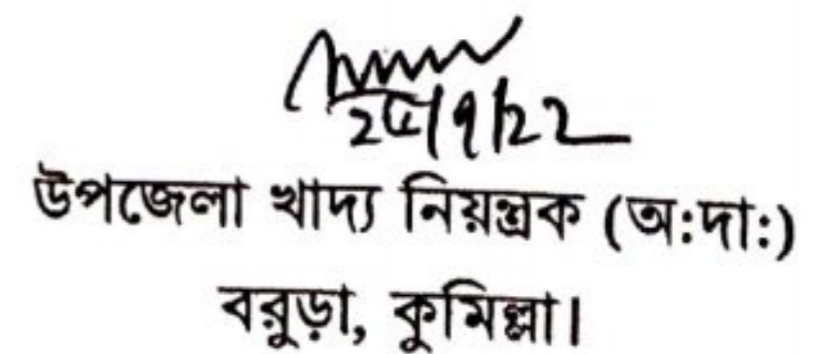 ২৫/৭/২২
উপজেলা খাদ্য নিয়ন্ত্রক (অ:দা:)
বরুড়া, কুমিল্লা।